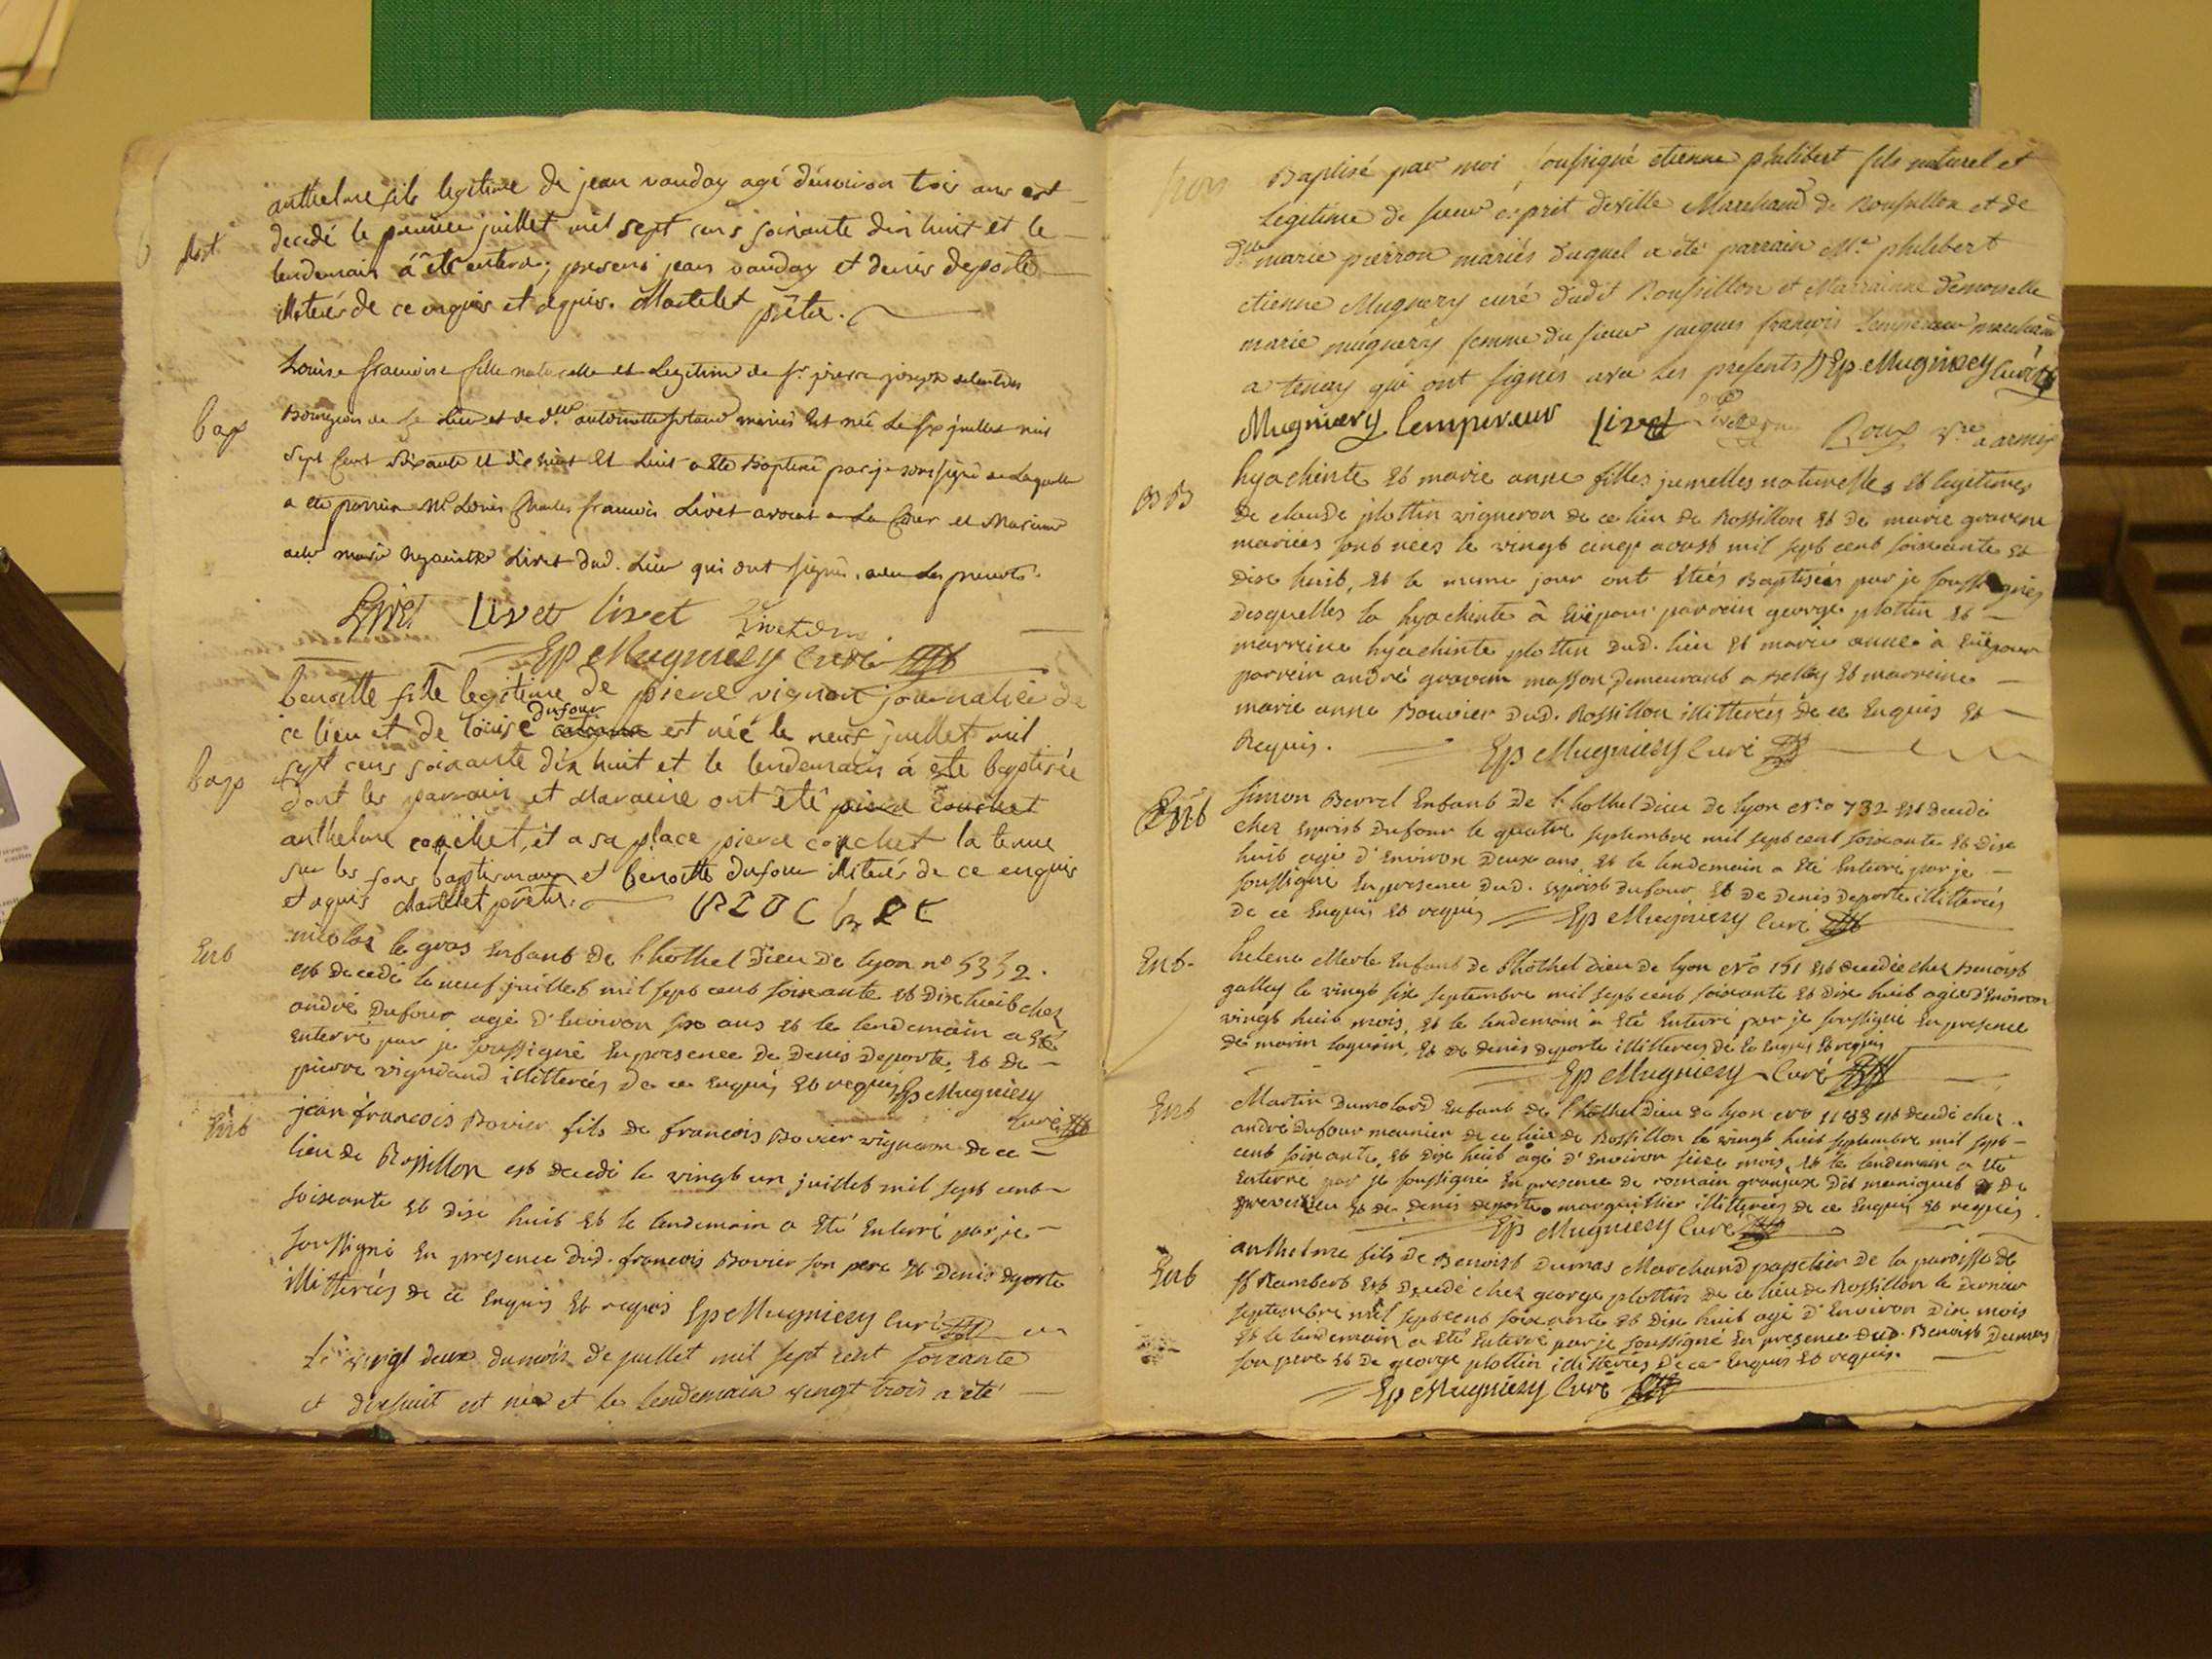 anthelme fils legitime de jean vauday agé d'environ trois ans est
Mort
decedé le premier juillet mil sept cens soixante dix huit et le
lendemain à été enterré; presens jean vauday et denis deporte
illiterés de ce enquis et requis. Martelet prêtre.
Louise francoise fille naturelle et Legitime de sr pierre joseph
Bap
Bourgeois de ce Lieu et de dlle antoinette mariés Est née Le six juillet mil
Sept Cent soixante et dix huit Et Luis a été baptisée par je soussigné de Laquelle
a été parrain Mr Louis Charles francois Livet avocat a La Cour et Maraine
delle marie hyacinthe Livet dud. Lieu qui ont signé. avec Les presents.
Livet Livet livet Livet
Ep Mugniery Curé
benoitte fille legitime de pierre vignon journalier de
dufour
ce lieu et de loüise est née le neuf juillet mil
bap
sept cens soixante dix huit et le lendemain à été baptisée
dont les parrain et Maraine ont été pierre couchet
anthelme couchet, et a sa place pierre couchet la tenue
sur les fons baptismaux et benoitte dufour illiterés de ce enquis
et requis Martelet prêtre.
Ent
nicolas le gros Enfant de l'hothel Dieu De lyon no 5352.
est decedé le neuf juillet mil sept cent soixante et Dix huit chez
andré Dufour agé d'Environ six ans et le lendemain a été
Enterré par je soussigné En presence De Denis Deporte et De
pierre vigneand illitterés De ce Enquis Et requis Ep Mugniery
Curé
Ent
jean francois Bovier fils de francois Bovier vigneron De ce
lieu De Rossillon est decedé le vingt un juillet mil sept cent
soixante et Dix huit et le lendemain a Eté Enterré par je
soussigné En presence Dud. francois Bovier son pere Et Denis Deporte
illitterés De ce Enquis Et requis Ep Mugniery Curé
Le vingt deux du mois de juillet mil sept cent soixante
et dixhuit est né et le lendemain vingt trois a été
Baptisé par moi soussigné etienne philibert fils naturel et
Legitime de sieur esprit deville Marchand de Roussillon et de
dlle marie pierron mariés duquel a été parrain Mre philibert
etienne Mugniery curé dudit Roussillon et Marrainne demoiselle
marie mugniery femme du sieur jacques françois lempereur marchand
a tenay qui ont signés avec les presents Ep Mugniery Curé
Mugniery Lempereur Livet Roux
BB
hyachinte et marie anne filles jumelles naturelles et legitimes
De claude plottin vigneron de ce lieu de Rossillon et de marie gravem
mariés sont nées le vingt cinq aoust mil sept cent soixante et
Dix huit, et le meme jour ont étées Baptisées par je soussignés
desquelles la hyachinte à Eüe pour parrein george plottin et
marreine hyachinte plottin dud. lieu Et marie anne à Eüe pour
parrein andré gravem masson Demeurant a Et marreine
marie anne Bouvier dud. Rossillon illitterés De ce Enquis Et
Requis. Ep Mugniery Curé
Ent
Simon Berrel Enfant De l'hothel dieu de lyon no 732 Est decedé
chez Esprit Dufour le quatre septembre mil sept cent soixante et Dix
huit agé d'Environ Deux ans, et le lendemain a Eté Enterré par je
soussigné En presence dud. Esprit Dufour Et de Denis deporte illitterés
de ce Enquis Et requis Ep Mugniery Curé
Ent.
helene Merle Enfant de l'hothel Dieu de lyon no 151 Est decedée chez Benoist
galley le vingt six septembre mil sept cent soixante Et dix huit agée d'Environ
vingt huit mois, Et le lendemain a Eté Enterré par je soussigné En presence
de marin, Et de denis deporte illitterés de ce Enquis Et requis
Ep Mugniery Curé
Ent
Martin Dumolard Enfant de l'hothel Dieu de lyon no 1183 est decedé chez
andré dufour meunier de ce lieu de Rossillon le vingt huit septembre mil sept
cent soixante, et dix huit agé d'Environ seize mois, Et le lendemain a Eté
Enterré par je soussigné En presence de romain dit De
Et de denis deporte marguillier illitterés de ce Enquis Et requis
Ep Mugniery Curé
Ent
anthelme fils de Benoist Dumas Marchand de la paroisse de
st Rambert Est decedé chez george plottin de ce lieu de Rossillon le dernier
septembre mil sept cent soixante Et dix huit agé d'Environ Dix mois
Et le lendemain a Eté Enterré par je soussigné En presence dud. Benoist Dumas
son pere Et de george plottin illitterés de ce Enquis Et requis.
Ep Mugniery Curé